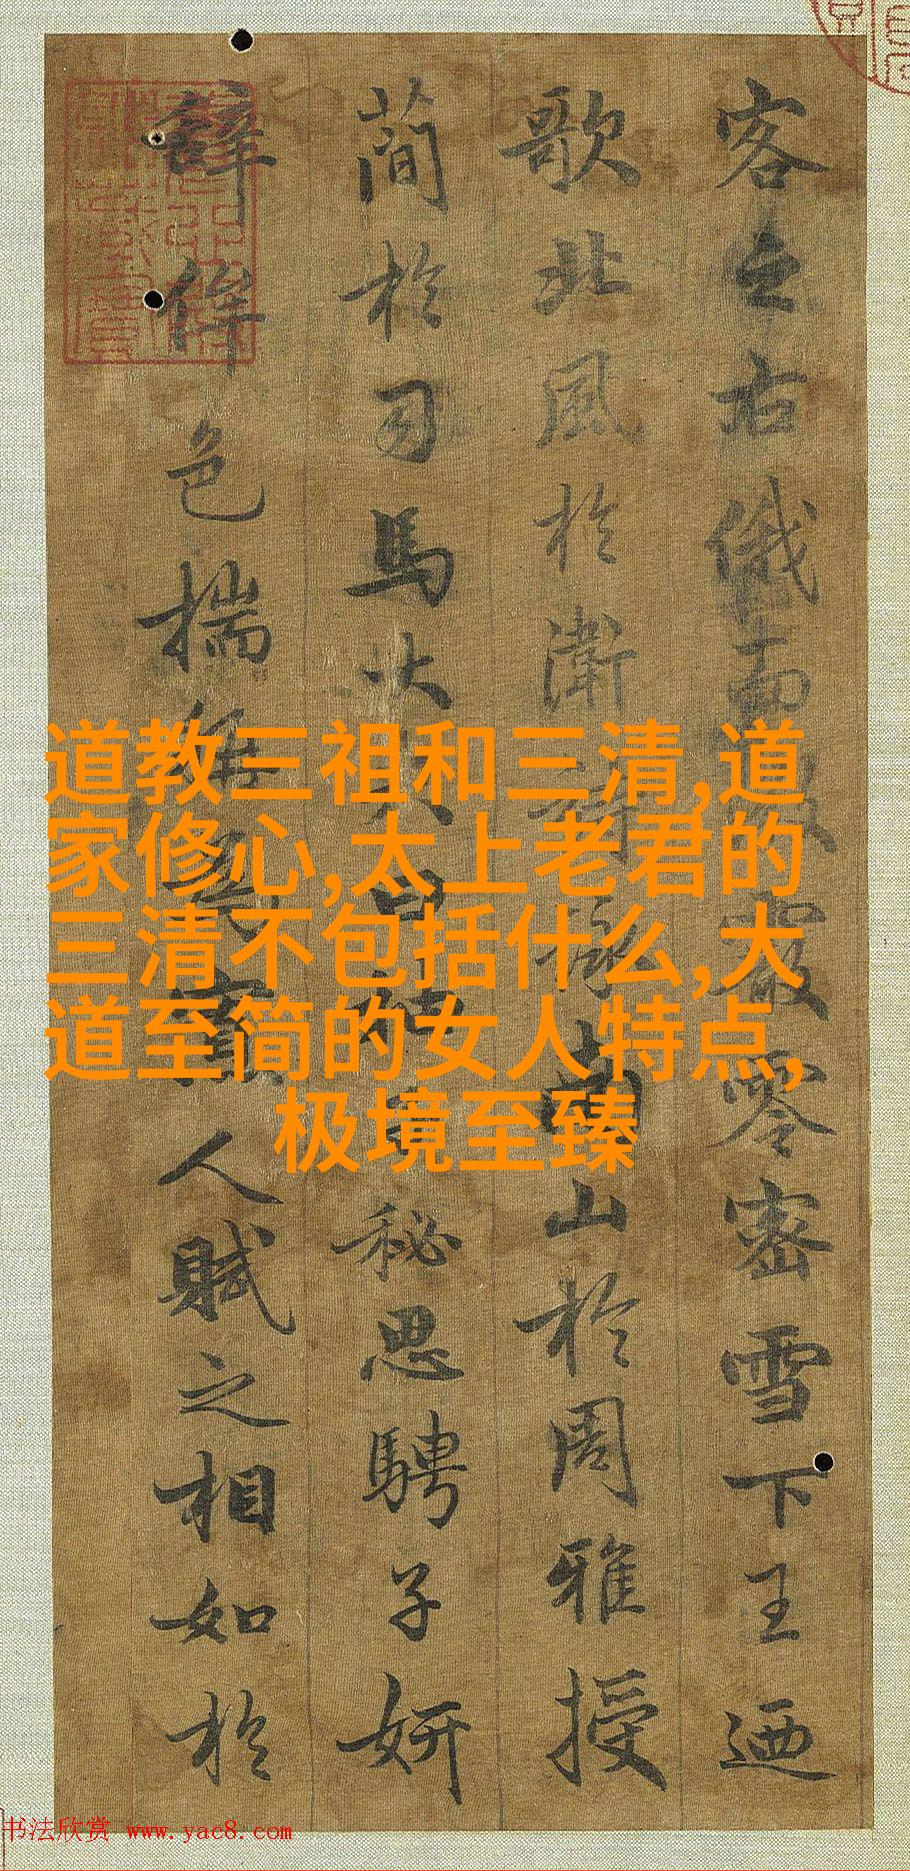 客之右俄而霰零密雪下王迺
歌北風於衛南山於周雅授
簡於司馬大曰秘思騁子妍
辭侔色揣人賦之相如於
道教三祖和三清,道
家修心,太上老君的
三清不包括什么,大
道至简的女人特点,
极境至臻
书法欣赏 www.yac8.com